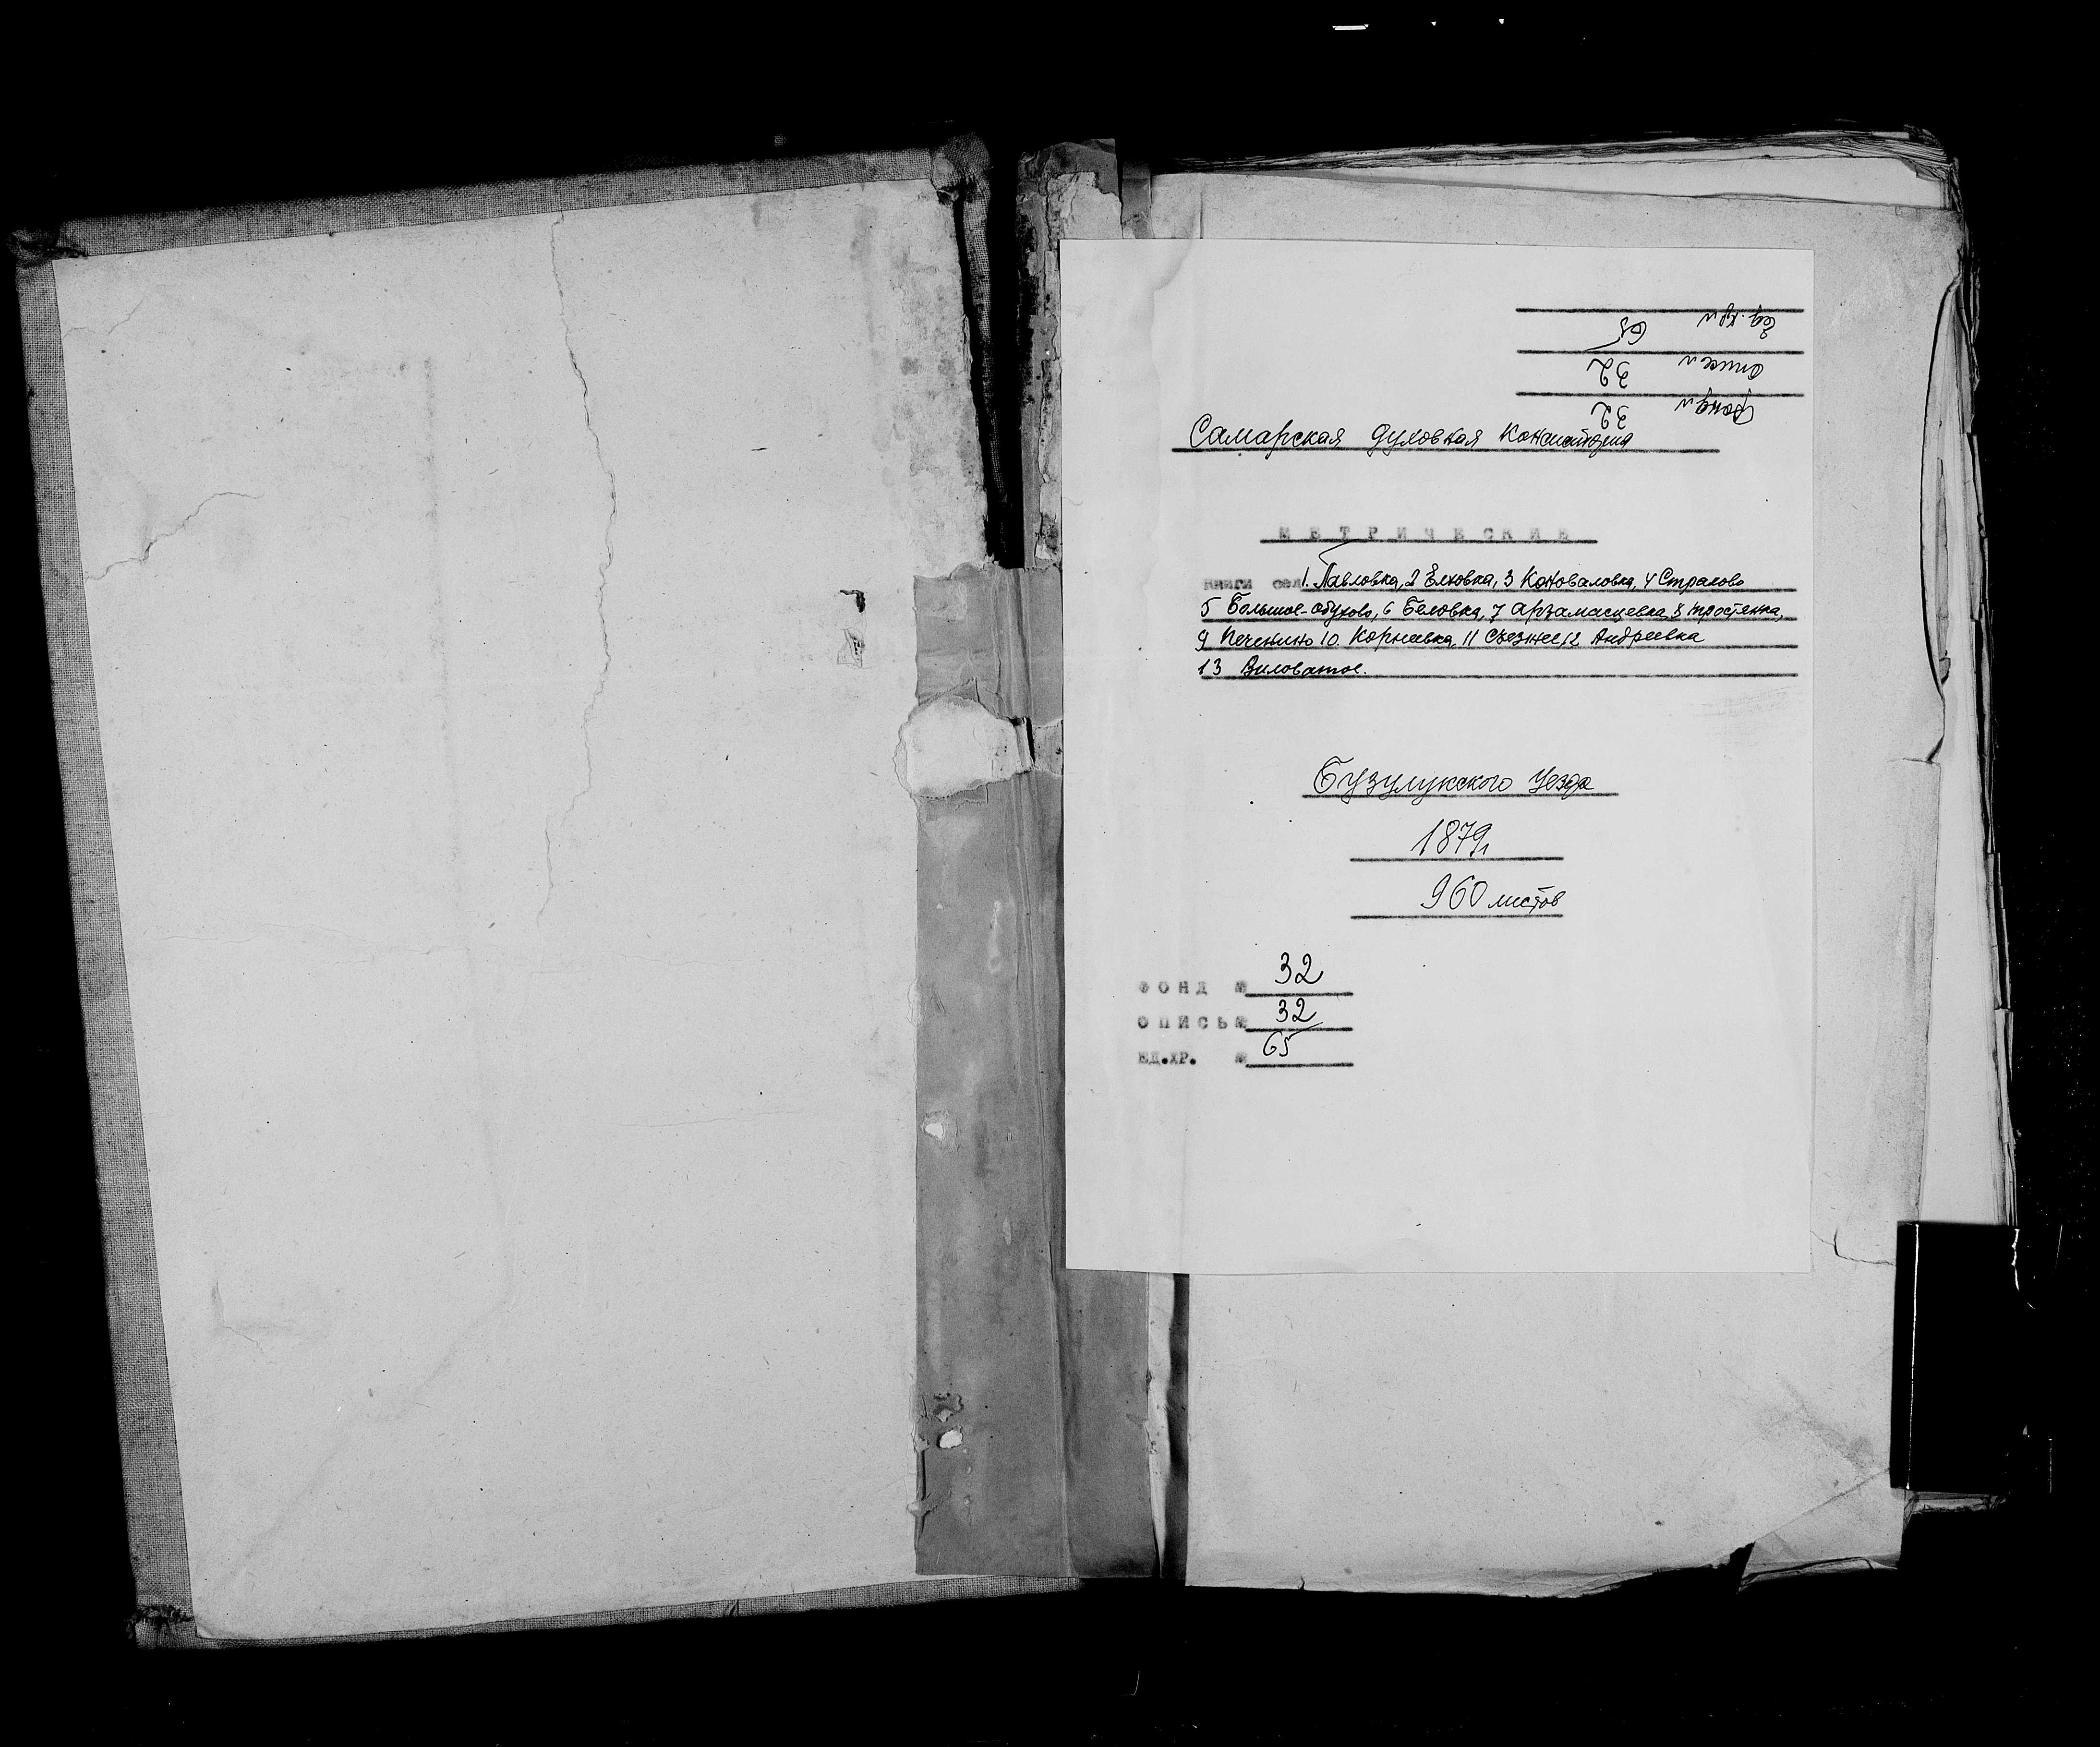 Ед. хр. № 65
Опись № 32
Фонд № 32
Самарская духовная Консистория
МЕТРИЧЕСКИЕ
книги сел 1. Павловка, 2 Елховка, 3 Коноваловка, 4 Страхово
5 Большое-Обухово, 6 Беловка, 7 Арзамасцевка, 8 Тростянка,
9 Печенино 10. Корнеевка, 11 Съезжее, 12 Андреевка
13 Виловатое.
Бузулукского уезда
1879г
960 листов
ФОНД № 32
ОПИСЬ № 32
ЕД.ХР. № 65